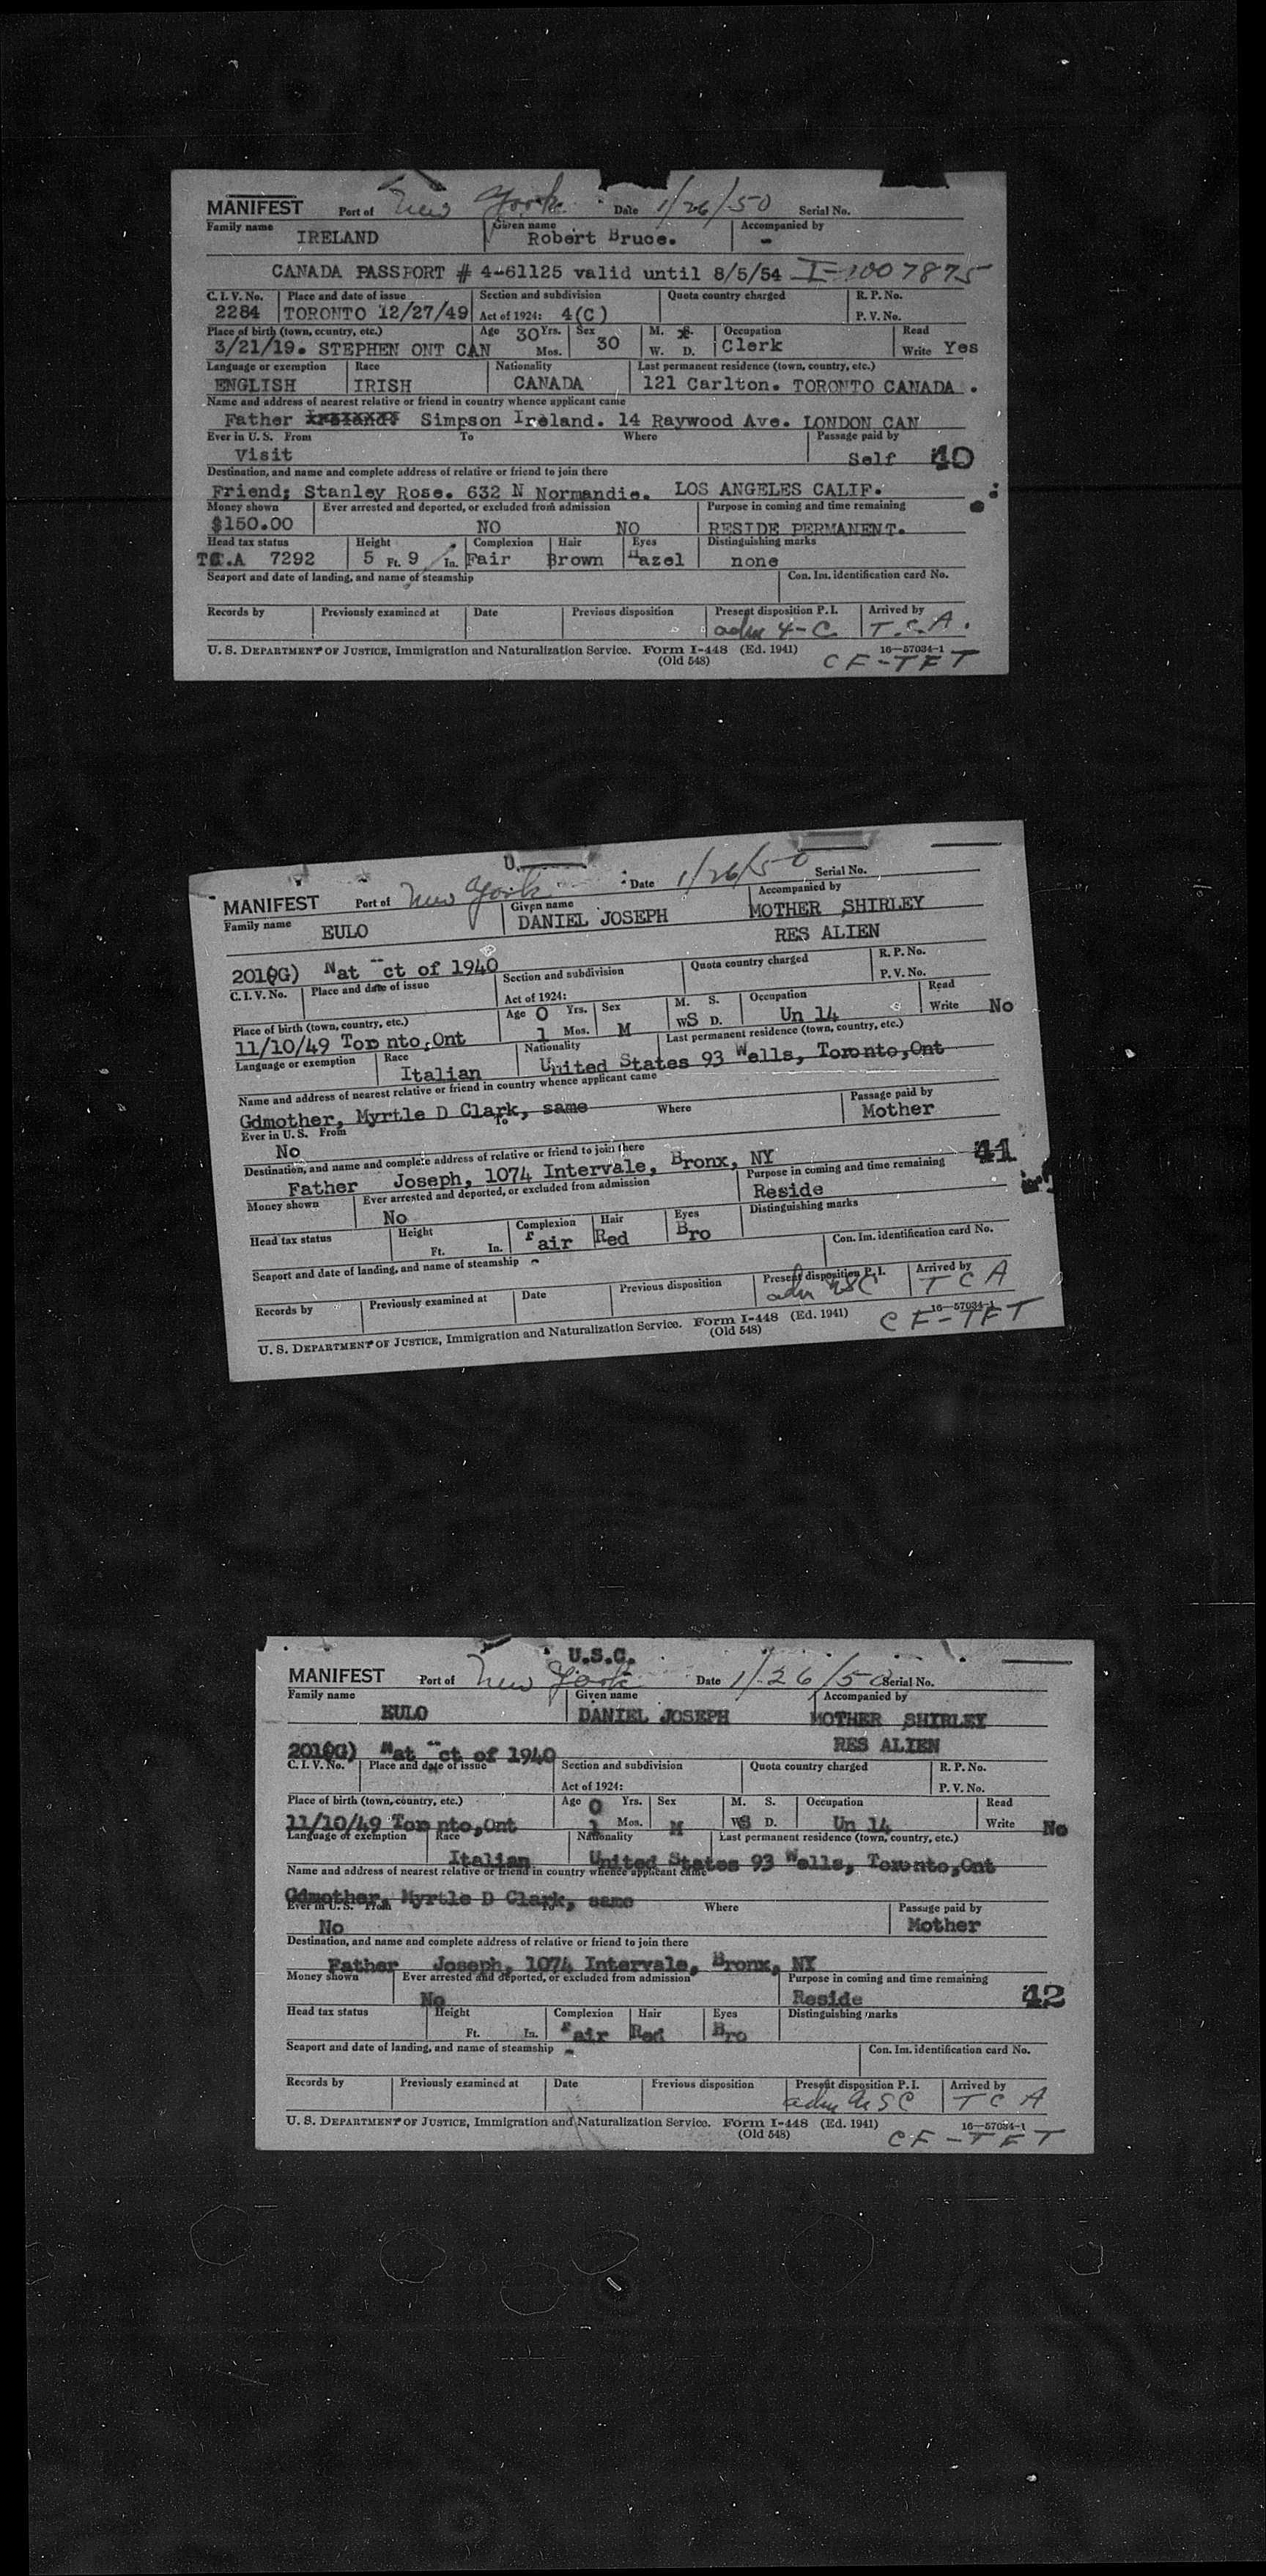 MANIFEST Port of New York Date 1/26/50 Serial No.
Family name Given name Accompanied by
IRELAND Robert Bruce. -
CANADA PASSPORT # 4-61125 valid until 8/5/54 I-1007875
C. I. V. No. Place and date of issue Section and subdivision Quota country charged R. P. No.
2284 TORONTO 12/27/49 Act of 1924: 4(C) P. V. No.
Place of birth (town, country, etc.) Age 30 Yrs. Sex M. S. Occupation Read
3/21/19. STEPHEN ONT CAN Mos. 30 W. D. Clerk Write Yes
Language or exemption Race Nationality Last permanent residence (town, country, etc.)
ENGLISH IRISH CANADA 121 Carlton. TORONTO CANADA .
Name and address of nearest relative or friend in country whence applicant came
Father Simpson Ireland. 14 Raywood Ave. LONDON CAN
Ever in U. S. From To Where Passage paid by
Visit Self 40
Destination, and name and complete address of relative or friend to join there
Friend; Stanley Rose. 632 N Normandie. LOS ANGELES CALIF.
Money shown Ever arrested and deported, or excluded from admission Purpose in coming and time remaining
$150.00 NO NO RESIDE PERMANENT.
Head tax status Height Complexion Hair Eyes Distinguishing marks
7292 5 Ft. 9 In. Fair Brown Hazel none
Seaport and date of landing, and name of steamship Con. Im. identification card No.
Records by Previously examined at Date Previous disposition Present disposition P. I. Arrived by
adm 4-C T.C.A.
U. S. DEPARTMENT OF JUSTICE, Immigration and Naturalization Service. Form I-448 (Ed. 1941) 16—57034-1
(Old 548) CF-TFT
U.
MANIFEST Port of New York Date 1/26/50 Serial No.
Family name Given name Accompanied by
EULO DANIEL JOSEPH MOTHER SHIRLEY
RES ALIEN
201(G) Nat ct of 1940
C. I. V. No. Place and date of issue Section and subdivision Quota country charged R. P. No.
Act of 1924: P. V. No.
Place of birth (town, country, etc.) Age 0 Yrs. Sex M. S. Occupation Read
11/10/49 Toronto,Ont 1 Mos. M WS D. Un 14 Write No
Language or exemption Race Nationality Last permanent residence (town, country, etc.)
Italian United States 93 Wells, Toronto,Ont
Name and address of nearest relative or friend in country whence applicant came
Gdmother, Myrtle D Clark, same
Ever in U. S. From To Where Passage paid by
No Mother
Destination, and name and complete address of relative or friend to join there
Father Joseph, 1074 Intervale, Bronx, NY 41
Money shown Ever arrested and deported, or excluded from admission Purpose in coming and time remaining
No Reside
Head tax status Height Complexion Hair Eyes Distinguishing marks
Ft. In. Fair Red Bro
Seaport and date of landing, and name of steamship - Con. Im. identification card No.
Records by Previously examined at Date Previous disposition Present disposition P. I. Arrived by
adm USC T C A
U. S. DEPARTMENT OF JUSTICE, Immigration and Naturalization Service. Form I-448 (Ed. 1941) 16—57034-1
(Old 548) CF-TFT
U.S.C.
MANIFEST Port of New York Date 1/26/50 Serial No.
Family name Given name Accompanied by
EULO DANIEL JOSEPH MOTHER SHIRLEY
RES ALIEN
201(G) Nat ct of 1940
C. I. V. No. Place and date of issue Section and subdivision Quota country charged R. P. No.
Act of 1924: P. V. No.
Place of birth (town, country, etc.) Age 0 Yrs. Sex M. S. Occupation Read
11/10/49 Toronto,Ont 1 Mos. M WS D. Un 14 Write No
Language or exemption Race Nationality Last permanent residence (town, country, etc.)
Italian United States 93 Wells, Toronto,Ont
Name and address of nearest relative or friend in country whence applicant came
Gdmother, Myrtle D Clark, same
Ever in U. S. From To Where Passage paid by
No Mother
Destination, and name and complete address of relative or friend to join there
Father Joseph, 1074 Intervale, Bronx, NY
Money shown Ever arrested and deported, or excluded from admission Purpose in coming and time remaining
No Reside 42
Head tax status Height Complexion Hair Eyes Distinguishing marks
Ft. In. Fair Red Bro
Seaport and date of landing, and name of steamship - Con. Im. identification card No.
Records by Previously examined at Date Previous disposition Present disposition P. I. Arrived by
adm USC T C A
U. S. DEPARTMENT OF JUSTICE, Immigration and Naturalization Service. Form I-448 (Ed. 1941) 16—57034-1
(Old 548) CF-TFT